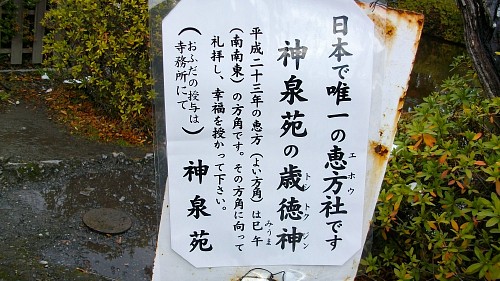 エホウ
日本で唯一の恵方社です
トシトクジン
神泉苑の歳徳神
みうま
平成二十三年の恵方（よい方角）は巳午
（南南東）の方角です。その方角に向って
礼拝し、幸福を授かって下さい。
（おふだの授与は
寺務所にて）
神泉苑